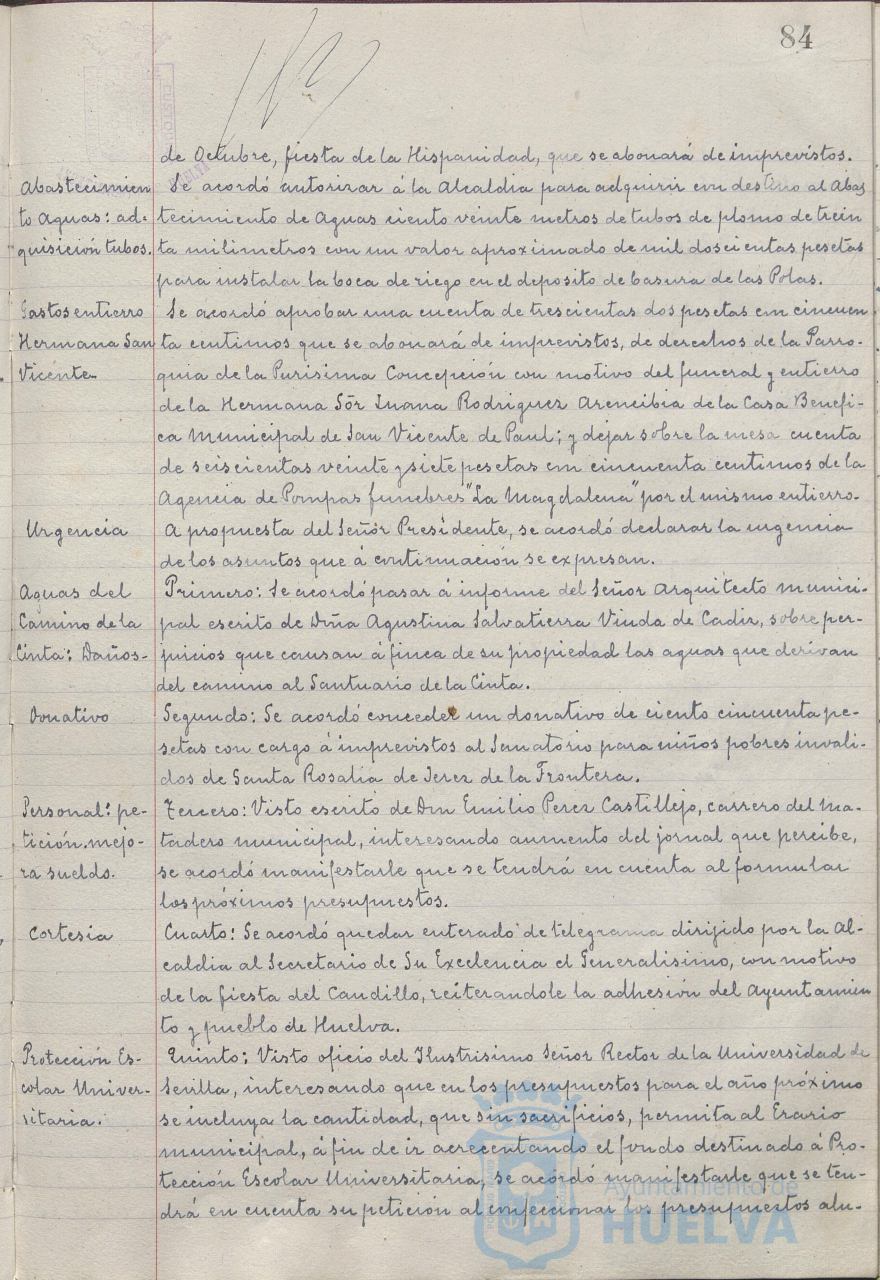 84
de Octubre, fiesta de la Hispanidad, que se abonará de imprevistos.
Abastecimien
to Aguas: ad-
quisición tubos.
Se acordó autorizar á la Alcaldia para adquirir con destino al Abas
tecimiento de Aguas ciento veinte metros de tubos de plomo de trein
ta milimetros con un valor aproximado de mil doscientas pesetas
para instalar la boca de riego en el deposito de basura de las Polas.
Gastos entierro
Hermana San
Vicente
Se acordó aprobar una cuenta de trescientas dos pesetas con cincuen
ta centimos que se abonará de imprevistos, de derechos de la Parro-
quia de la Purisima Concepción con motivo del funeral y entierro
de la Hermana Sōr Juana Rodriguez Arencibia de la Casa Benefi-
ca Municipal de San Vicente de Paul; y dejar sobre la mesa cuenta
de seiscientas veinte y siete pesetas con cincuenta centimos de la
Agencia de Pompas funebres "La Magdalena" por el mismo entierro.
Urgencia
A propuesta del Señor Presidente, se acordó declarar la urgencia
de los asuntos que á continuación se expresan.
Aguas del
Camino de la
Cinta: Daños-
Primero: Se acordó pasar á informe del Señor Arquitecto munici-
pal escrito de Doña Agustina Salvatierra Viuda de Cadiz, sobre per-
juicios que causan á finca de su propiedad las aguas que derivan
del camino al Santuario de la Cinta.
Donativo
Segundo: Se acordó conceder un donativo de ciento cincuenta pe-
setas con cargo á imprevistos al Sanatorio para niños pobres invali-
dos de Santa Rosalia de Jerez de la Frontera.
Personal: pe-
tición mejo-
ra sueldo.
Tercero: Visto escrito de Don Emilio Perez Castillejo, carrero del Ma-
tadero municipal, interesando aumento del jornal que percibe,
se acordó manifestarle que se tendrá en cuenta al formular
los próximos presupuestos.
Cortesia
Cuarto: Se acordó quedar enterado de telegrama dirijido por la Al-
caldia al Secretario de Su Excelencia el Generalisimo, con motivo
de la fiesta del Caudillo, reiterandole la adhesión del Ayuntamien
to y pueblo de Huelva.
Protección Es-
colar Univer-
sitaria.
Quinto: Visto oficio del Ilustrisimo Señor Rector de la Universidad de
Sevilla, interesando que en los presupuestos para el año próximo
se incluya la cantidad, que sin sacrificios, permita al Erario
municipal, á fin de ir acrecentando el fondo destinado á Pro-
tección Escolar Universitaria, se acordó manifestarle que se ten-
drá en cuenta su petición al confeccionar los presupuestos alu-
Ayuntamiento de
HUELVA